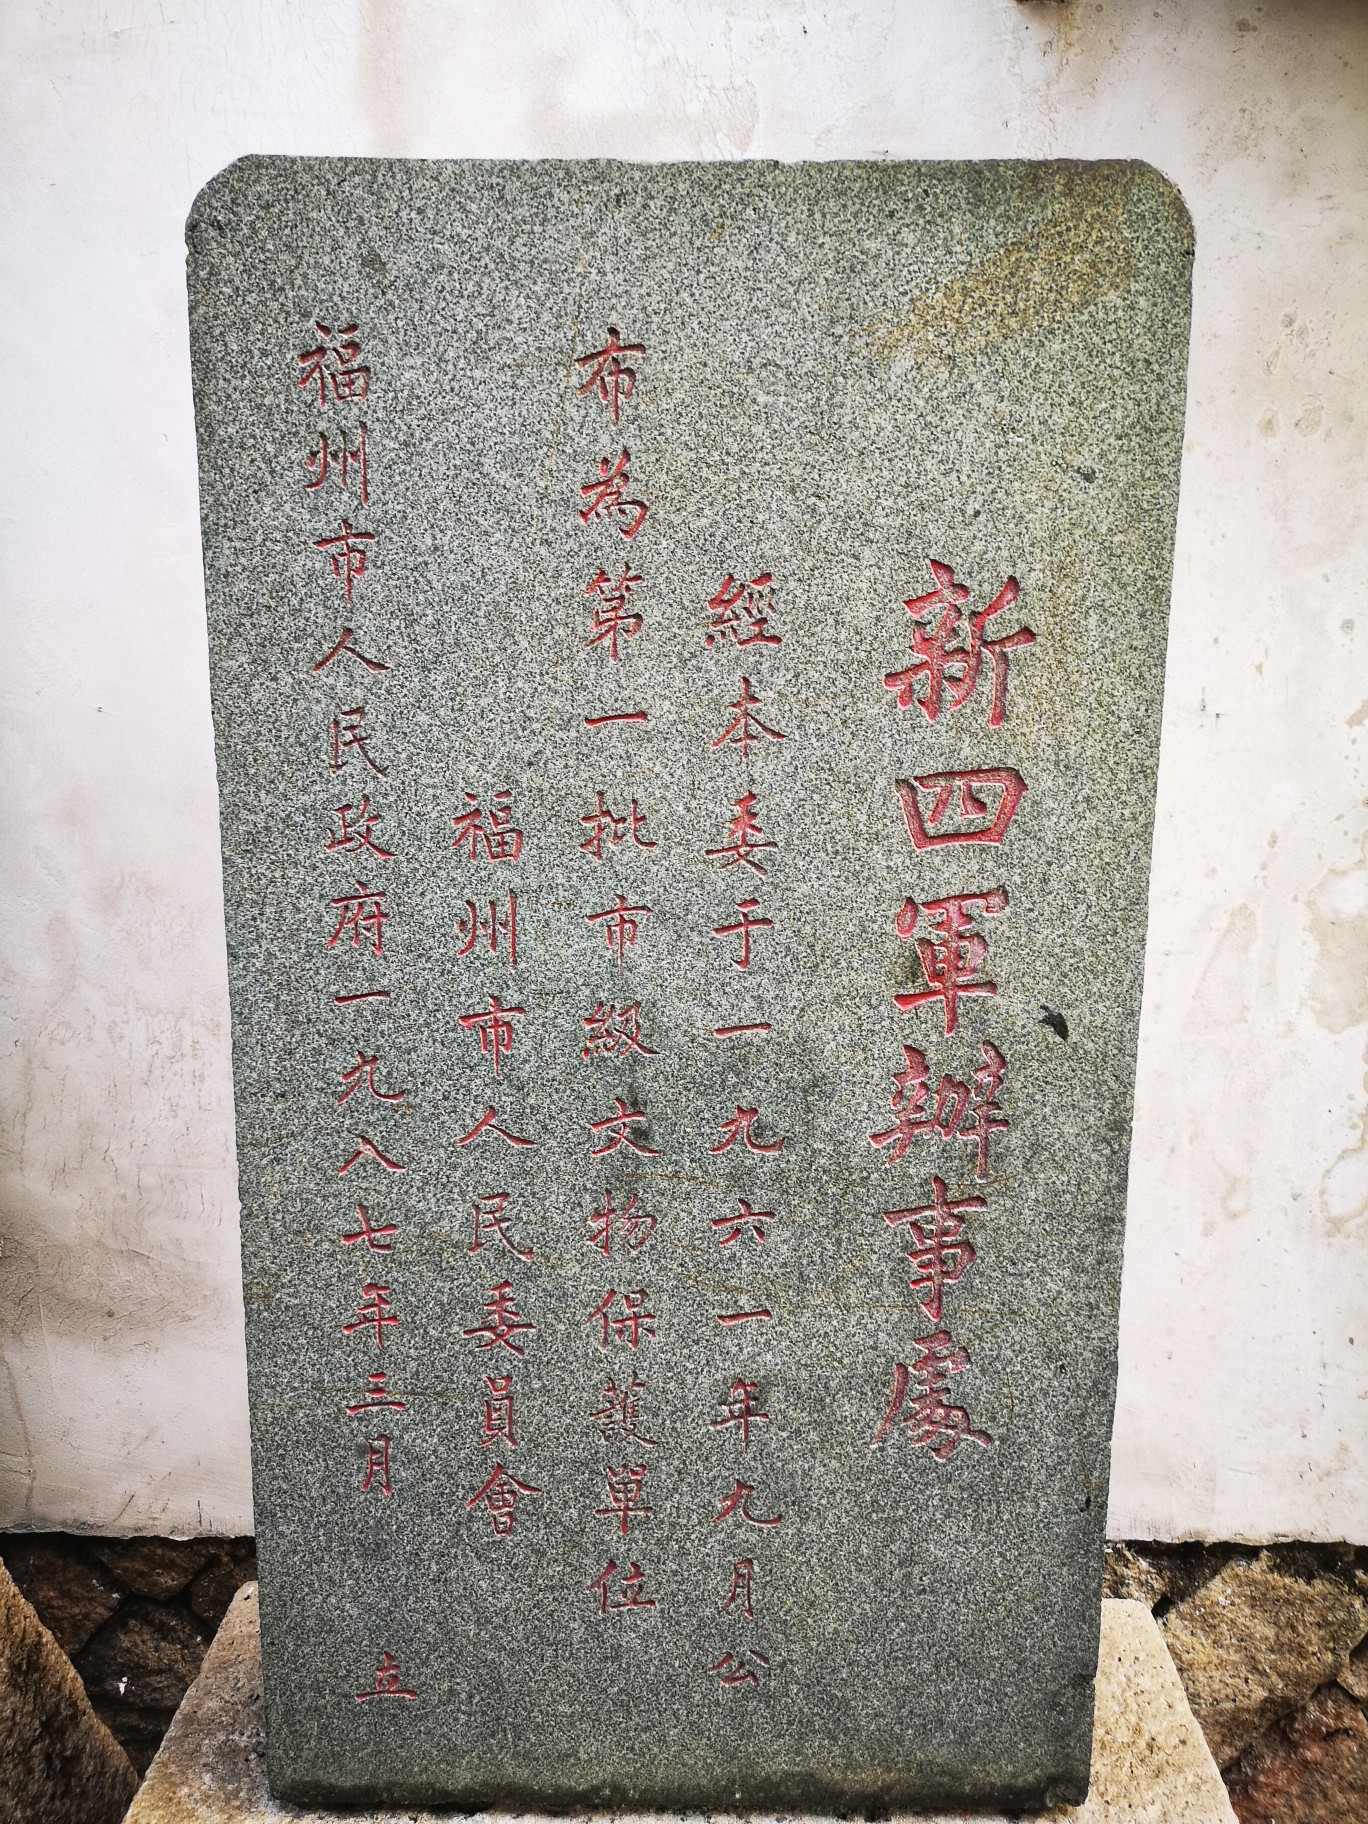 新四軍辦事處
經本委于一九六一年九月公
布為第一批市級文物保護單位
福州市人民委員會
福州市人民政府一九八七年三月 立